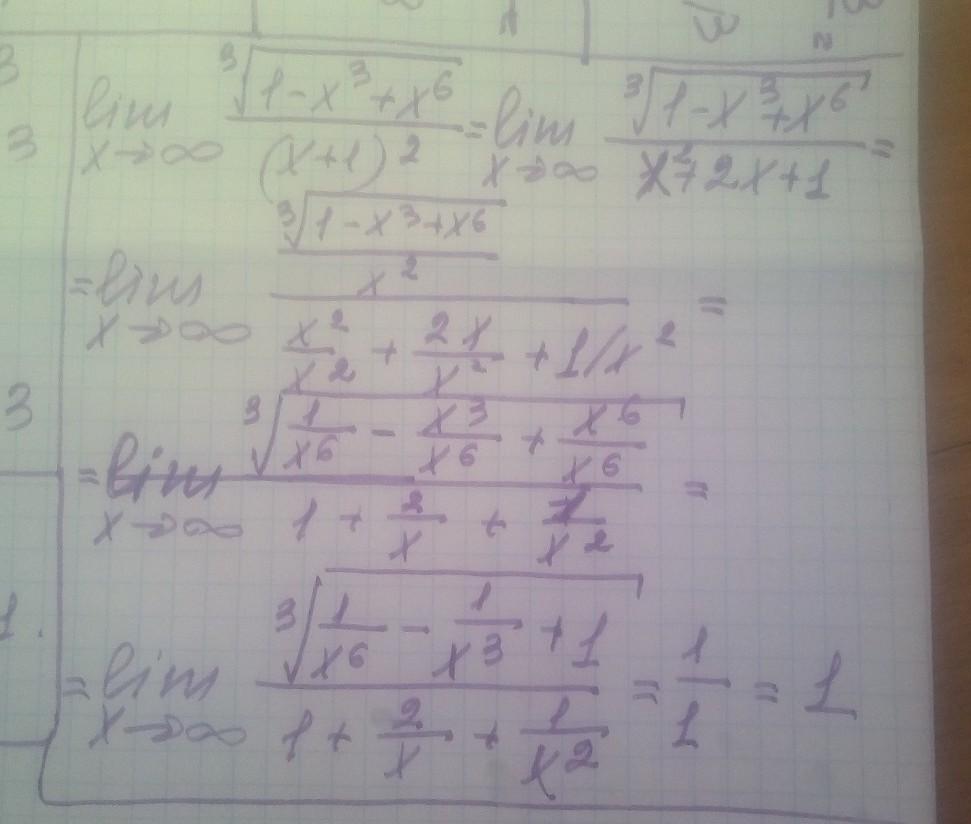 lim x→∞ ∛(1-x³+x⁶) / (x+1)² = lim x→∞ ∛(1-x³+x⁶) / x²+2x+1 =
= lim x→∞ (∛(1-x³+x⁶) / x²) / (x²/x² + 2x/x² + 1/x²) =
= lim x→∞ ∛(1/x⁶ - x³/x⁶ + x⁶/x⁶) / (1 + 2/x + 1/x²) =
= lim x→∞ ∛(1/x⁶ - 1/x³ + 1) / (1 + 2/x + 1/x²) = 1/1 = 1
3
3
3
1.